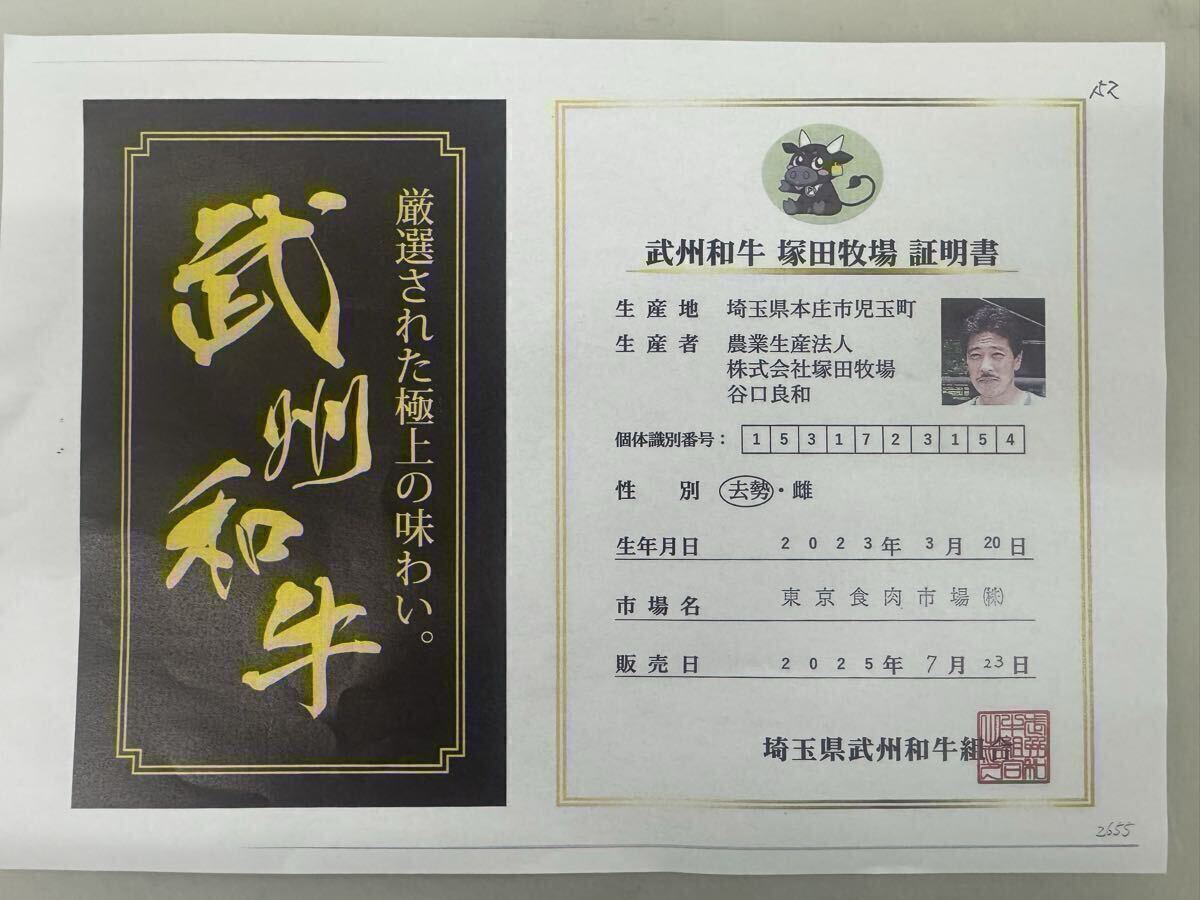 武州和牛
厳選された極上の味わい。
武州和牛 塚田牧場 証明書
生産地 埼玉県本庄市児玉町
生産者 農業生産法人
株式会社塚田牧場
谷口良和
個体識別番号: 1531723154
性別 去勢・雌
生年月日 2023年3月20日
市場名 東京食肉市場㈱
販売日 2025年7月23日
埼玉県武州和牛組合
2655